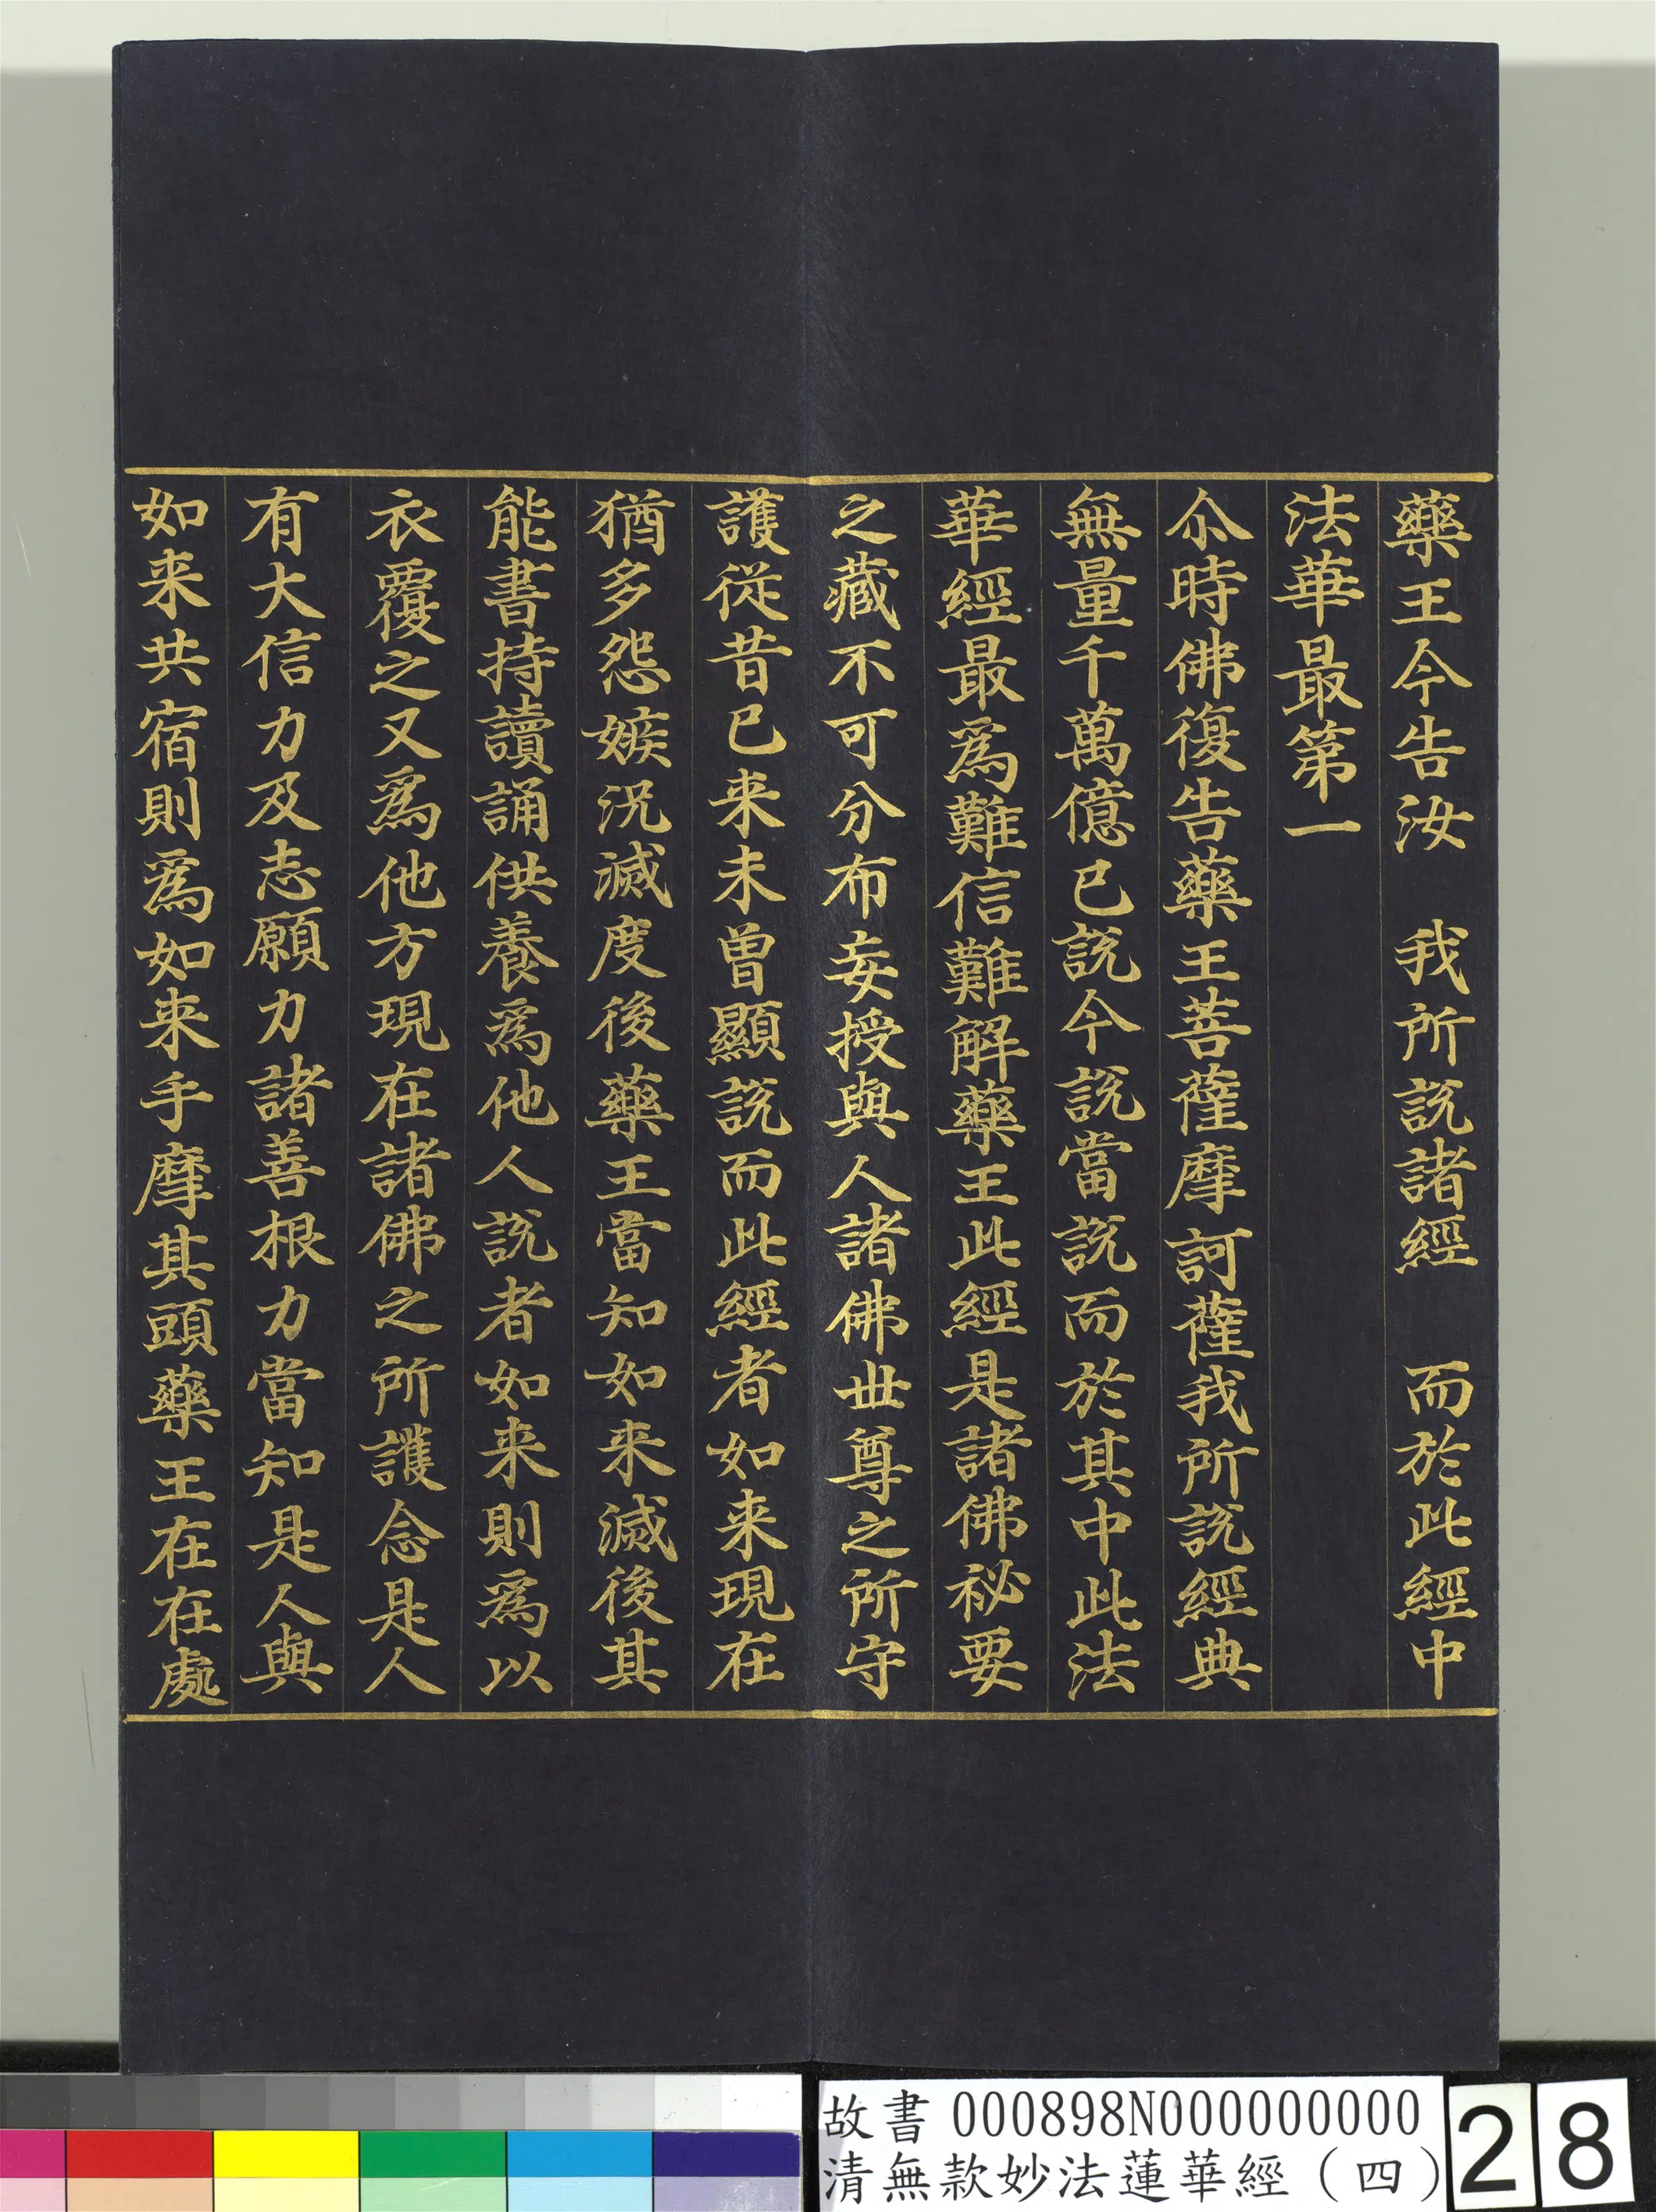 藥王今告汝　我所說諸經　而於此經中
法華最第一
尒時佛復告藥王菩薩摩訶薩我所說經典
無量千萬億已說今說當說而於其中此法
華經最爲難信難解藥王此經是諸佛祕要
之藏不可分布妄授與人諸佛世尊之所守
護從昔已来未曾顯說而此經者如来現在
猶多怨嫉況滅度後藥王當知如来滅後其
能書持讀誦供養爲他人說者如来則爲以
衣覆之又爲他方現在諸佛之所護念是人
有大信力及志願力諸善根力當知是人與
如来共宿則爲如来手摩其頭藥王在在處
故書 000898N000000000
清無款妙法蓮華經（四）
28